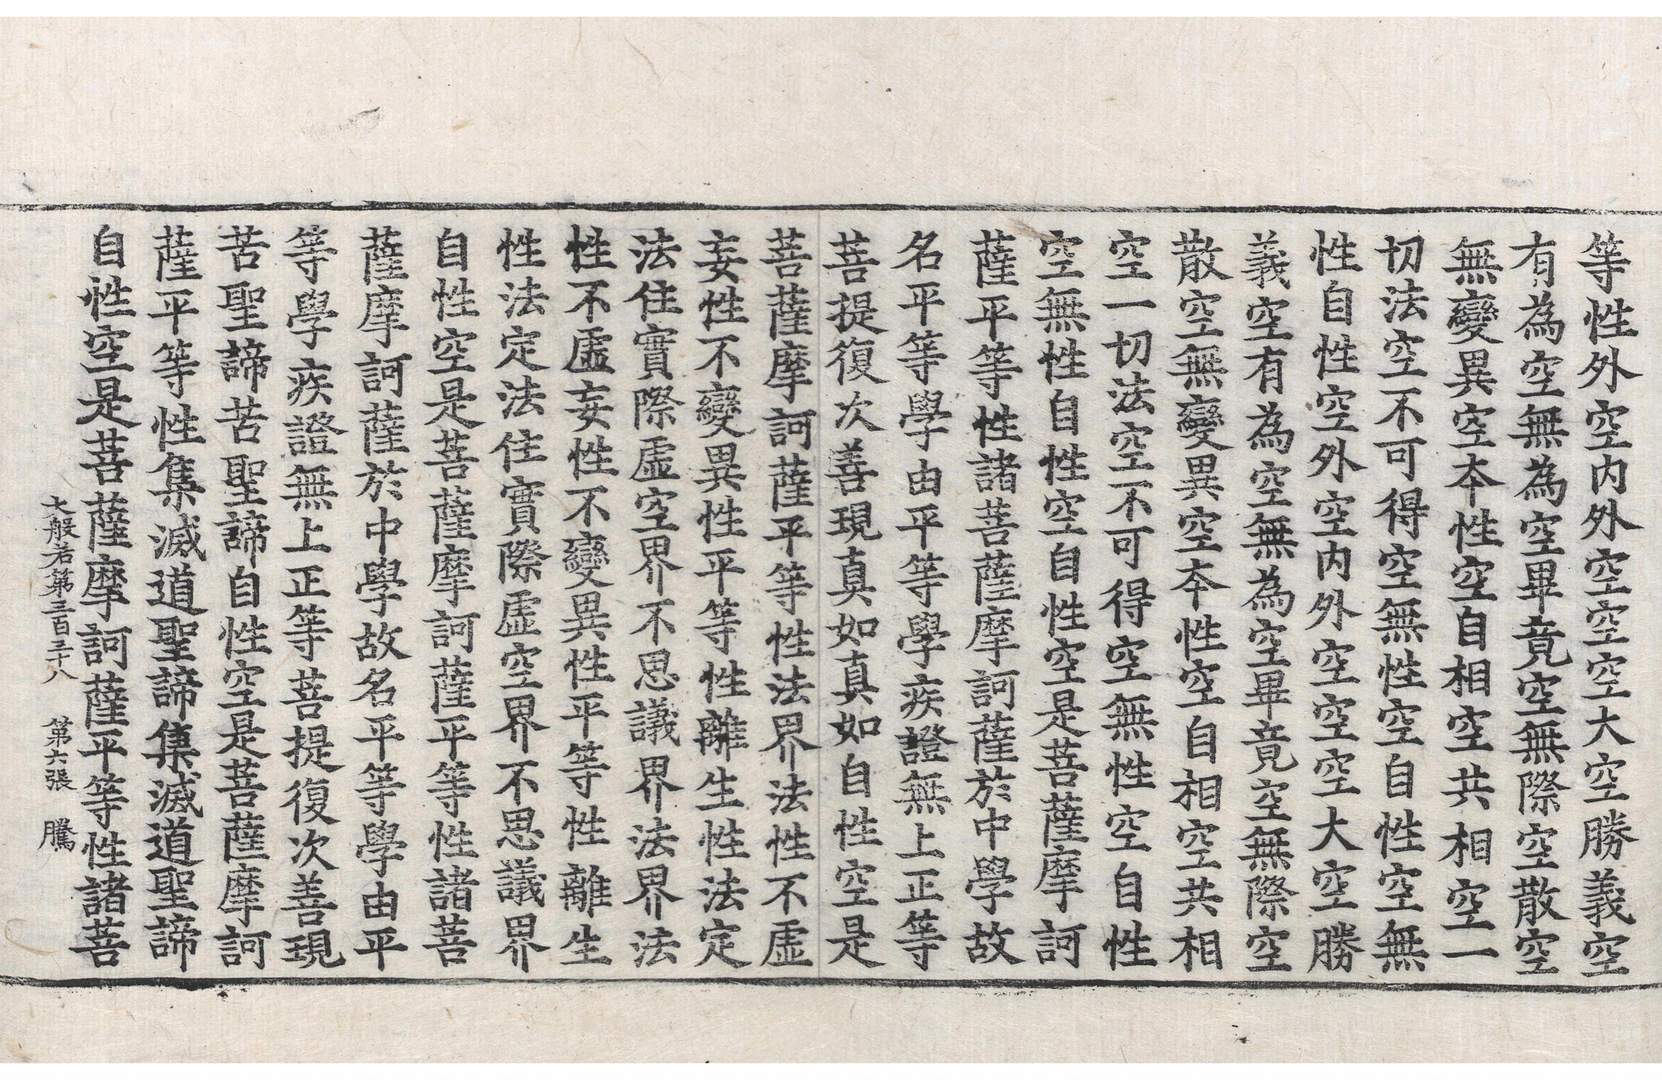 等性外空內外空空空大空勝義空
有為空無為空畢竟空無際空散空
無變異空本性空自相空共相空一
切法空不可得空無性空自性空無
性自性空外空內外空空空大空勝
義空有為空無為空畢竟空無際空
散空無變異空本性空自相空共相
空一切法空不可得空無性空自性
空無性自性空自性空是菩薩摩訶
薩平等性諸菩薩摩訶薩於中學故
名平等學由平等學疾證無上正等
菩提復次善現真如真如自性空是
菩薩摩訶薩平等性法界法性不虛
妄性不變異性平等性離生性法定
法住實際虛空界不思議界法界法
性不虛妄性不變異性平等性離生
性法定法住實際虛空界不思議界
自性空是菩薩摩訶薩平等性諸菩
薩摩訶薩於中學故名平等學由平
等學疾證無上正等菩提復次善現
苦聖諦苦聖諦自性空是菩薩摩訶
薩平等性集滅道聖諦集滅道聖諦
自性空是菩薩摩訶薩平等性諸菩
大般若第三百三十八 第六張 騰